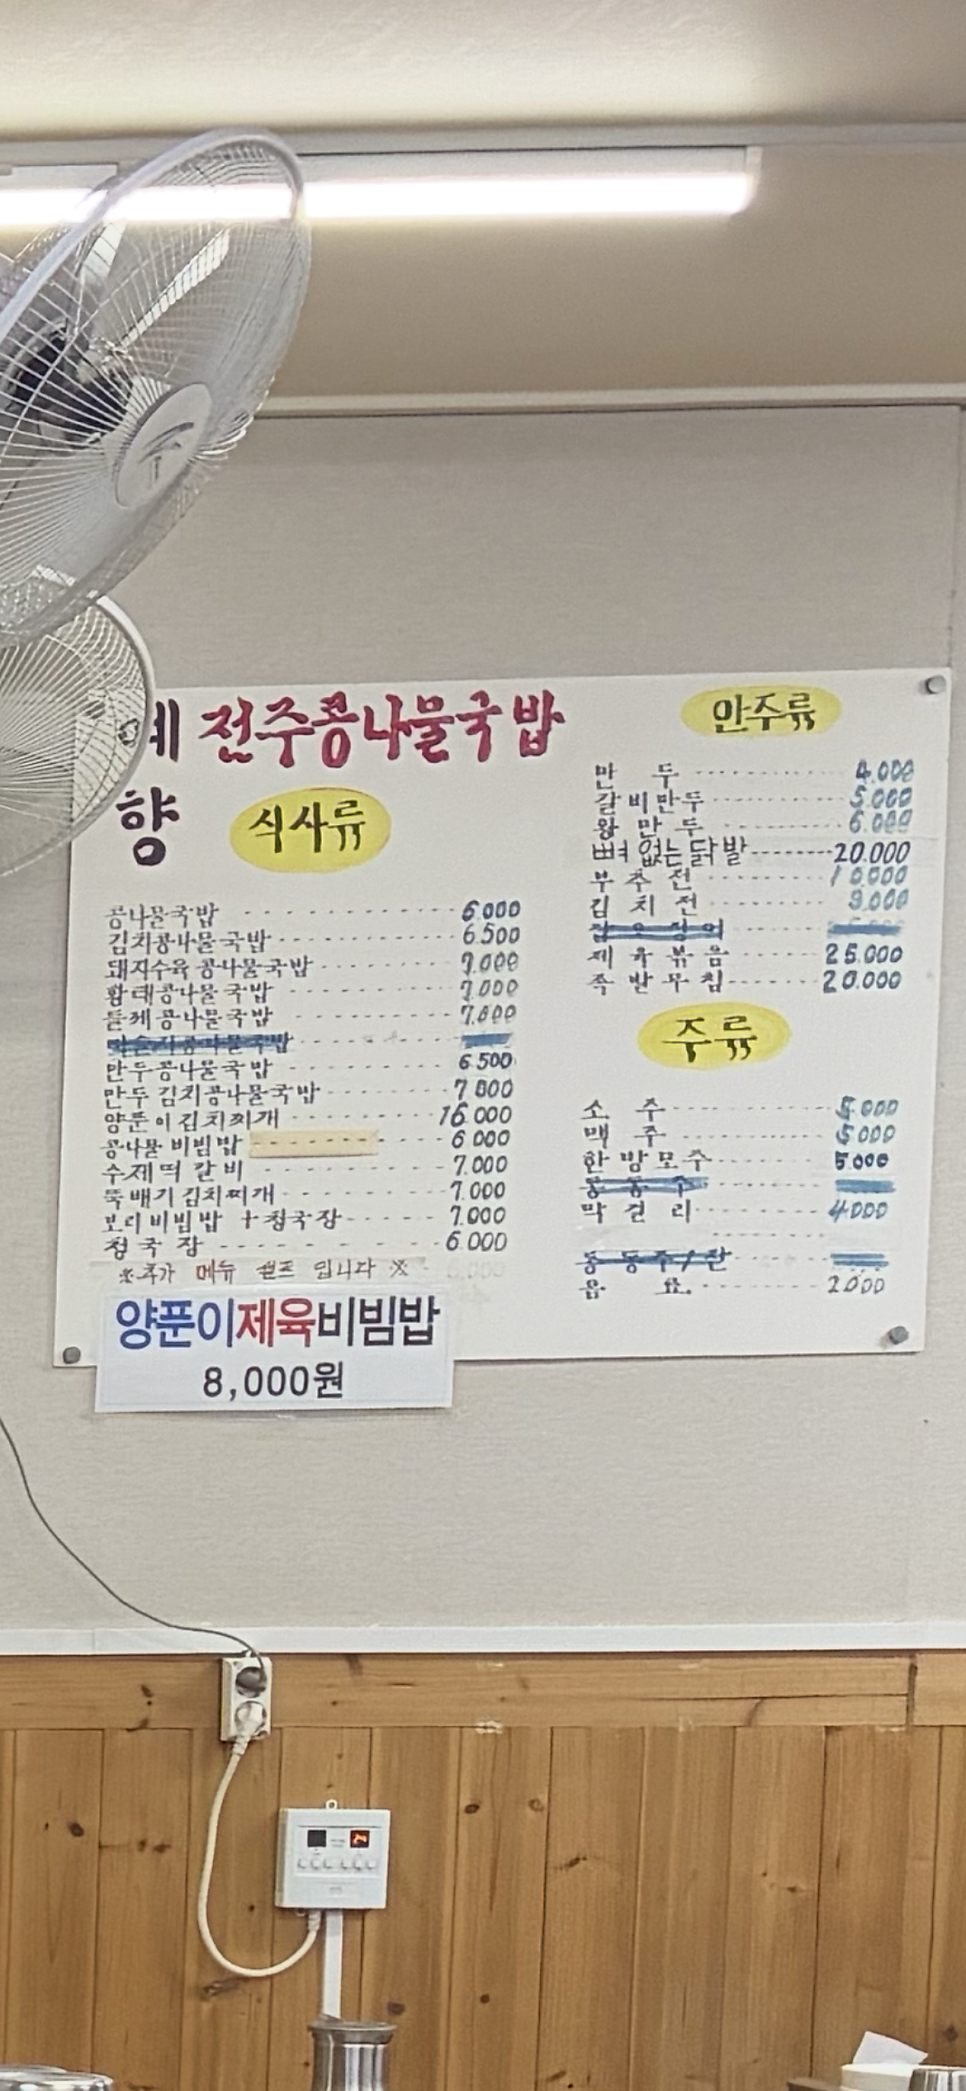 전주콩나물국밥
향
식사류
콩나물국밥 6.000
김치콩나물국밥 6.500
돼지수육 콩나물국밥 7.000
황태콩나물국밥 7.000
들께콩나물국밥 7.000
만두콩나물국밥 6.500
만두 김치콩나물국밥 7000
양푼이김치찌개 16.000
콩나물비빔밥 6.000
수제떡갈비 7.000
뚝배기김치찌개 7.000
보리비빔밥 + 청국장 7.000
청국장 6.000
※추가 메뉴 셀프 입니다 ※
양푼이제육비빔밥
8,000원
안주류
만두 4.000
갈비만두 5.000
왕만두 6.000
뼈없는닭발 20.000
부추전 10.000
김치전 9.000
제육볶음 25.000
족발무침 20.000
주류
소주 5.000
맥주 5000
한방모주 5.000
동동주
막걸리 4000
동동주/잔
음료 2000